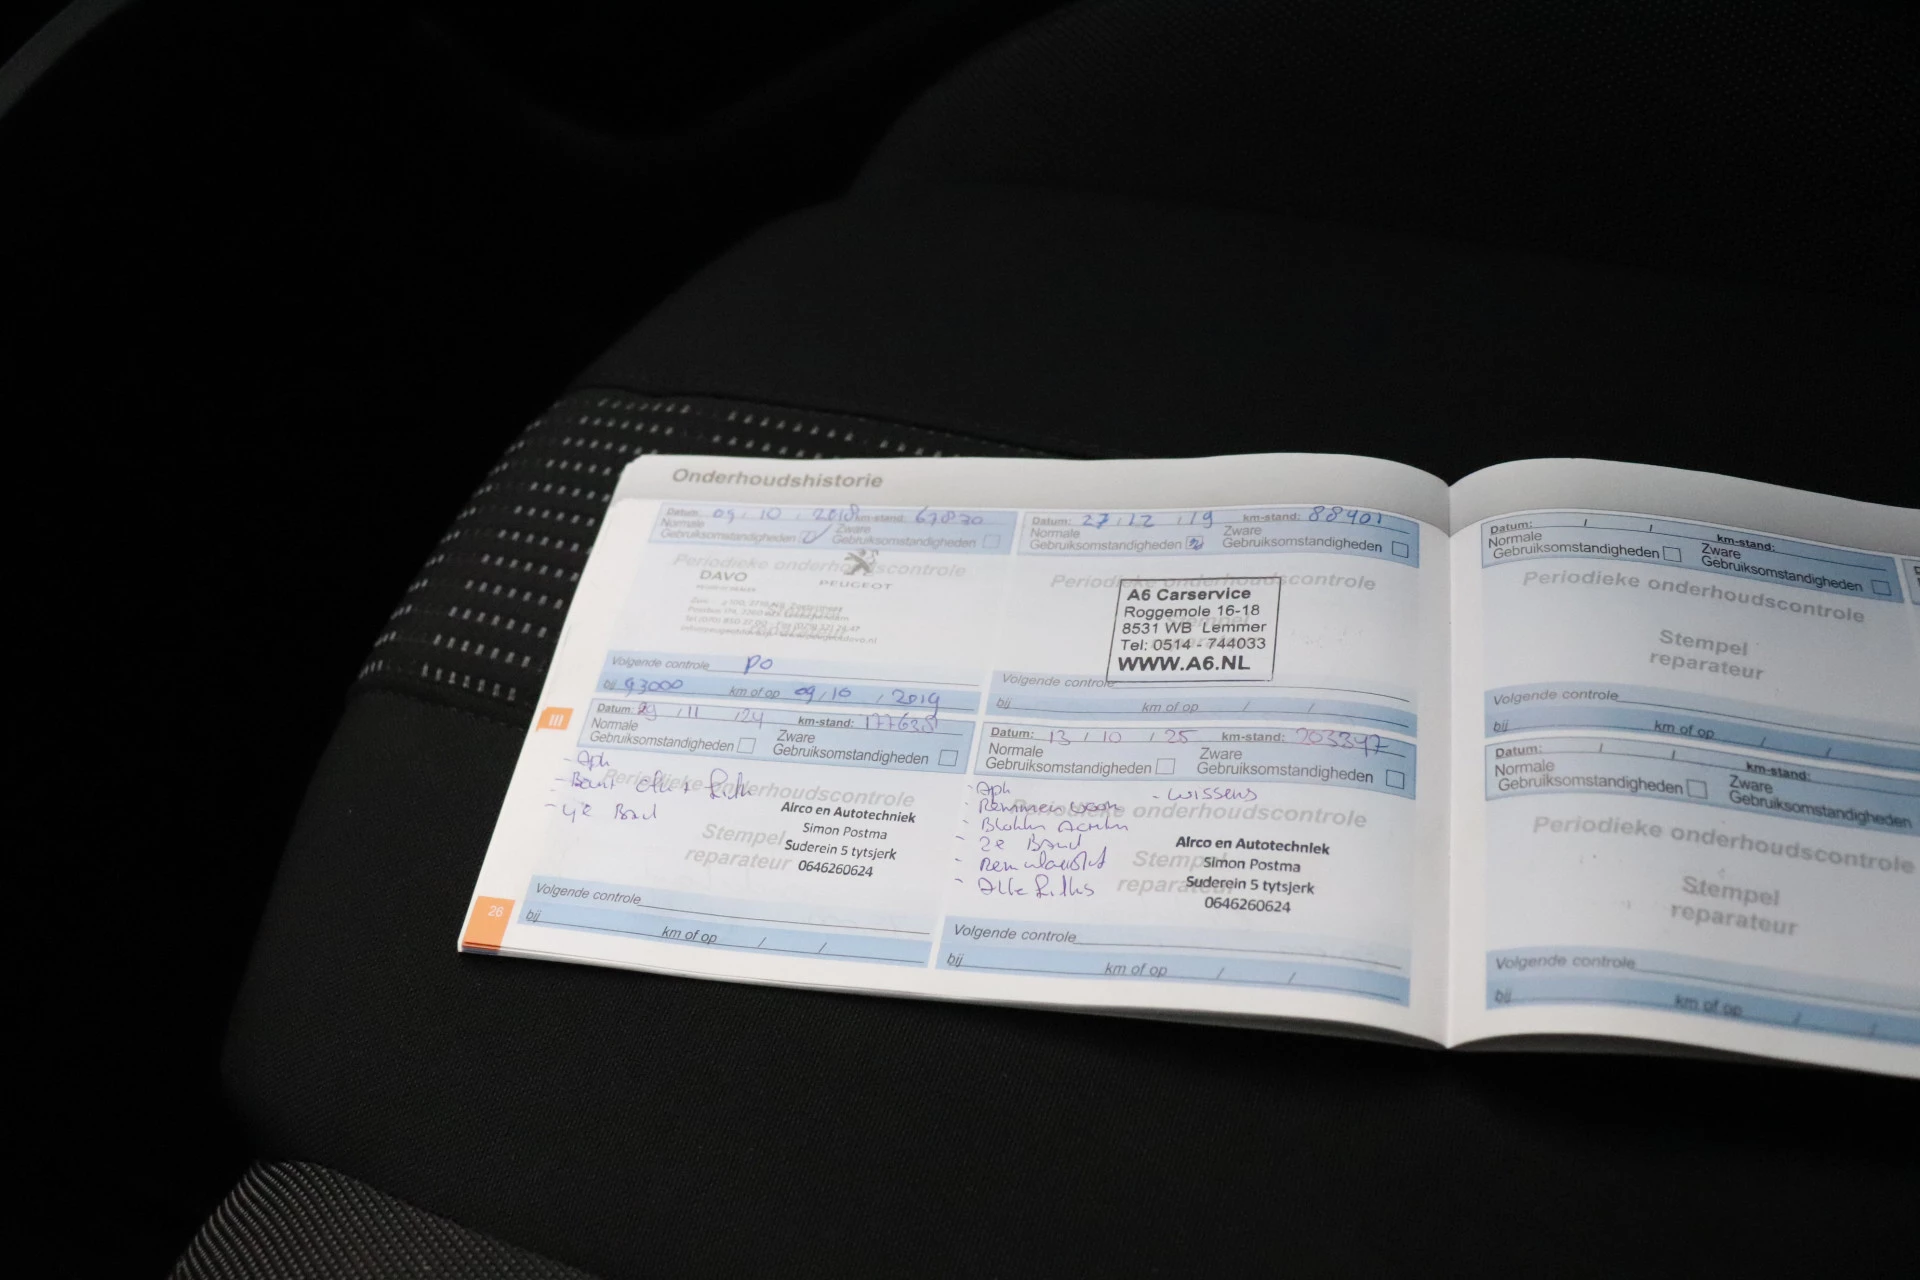 Onderhoudshistorie
Datum: 09 / 10 / 2018 km-stand: 67870
Normale Gebruiksomstandigheden
Zware Gebruiksomstandigheden
Periodieke onderhoudscontrole
DAVO
PEUGEOT
Volgende controle PO
bij 93000 km of op 09 / 10 / 2019
Datum: 27 / 12 / 19 km-stand: 88401
Normale Gebruiksomstandigheden
Zware Gebruiksomstandigheden
Periodieke onderhoudscontrole
A6 Carservice
Roggemole 16-18
8531 WB Lemmer
Tel: 0514 - 744033
WWW.A6.NL
Volgende controle
bij km of op / /
III
Datum: 29 / 11 / 24 km-stand: 177628
Normale Gebruiksomstandigheden
Zware Gebruiksomstandigheden
- Aph
Periodieke onderhoudscontrole
- 4e Band
Stempel reparateur
Airco en Autotechniek
Simon Postma
Suderein 5 tytsjerk
0646260624
Volgende controle
bij km of op / /
26
Datum: 13 / 10 / 25 km-stand: 203347
Normale Gebruiksomstandigheden
Zware Gebruiksomstandigheden
- Aph
- wissers
Periodieke onderhoudscontrole
- 2e Band
Stempel reparateur
Airco en Autotechniek
Simon Postma
Suderein 5 tytsjerk
0646260624
Volgende controle
bij km of op / /
Datum: / / km-stand:
Normale Gebruiksomstandigheden
Zware Gebruiksomstandigheden
Periodieke onderhoudscontrole
Stempel
reparateur
Volgende controle
bij km of op / /
Datum: / / km-stand:
Normale Gebruiksomstandigheden
Zware Gebruiksomstandigheden
Periodieke onderhoudscontrole
Stempel
reparateur
Volgende controle
bij km of op / /